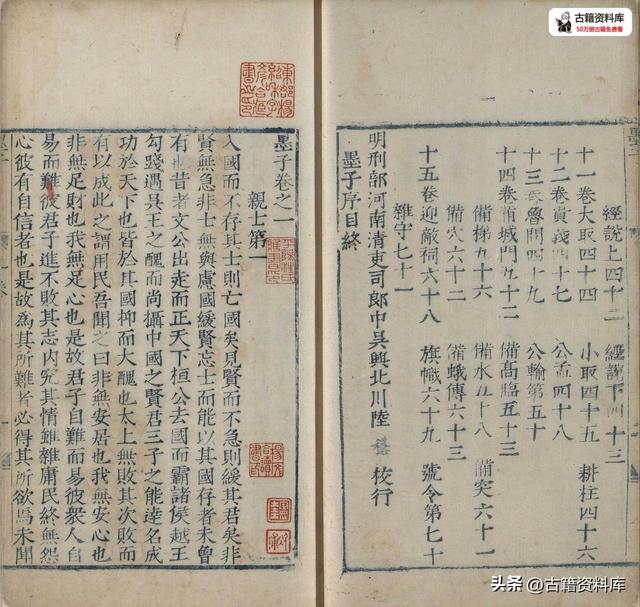 古籍资料库
50万册古籍免费看
經說上四十二 經說下四十三
十一卷大取四十四 小取四十五 耕柱四十六
十二卷貴義四十七 公孟四十八
十三卷魯問四十九 公輸第五十
十四卷備城門五十二 備高臨五十三
備梯五十六 備水五十八 備突六十一
備穴六十二 備蛾傳六十三
十五卷迎敵祠六十八 旗幟六十九 號令第七十
雜守七十一
明刑部河南清吏司郎中吳興北川陸 校行
墨子序目終
墨子卷之一
親士第一
入國而不存其士則亡國矣見賢而不急則緩其君矣非
賢無急非士無與慮國緩賢忘士而能以其國存者未曾
有也昔者文公出走而正天下桓公去國而霸諸侯越王
勾踐遇吳王之醜而尚攝中國之賢君三子之能達名成
功於天下也皆於其國抑而大醜也太上無敗其次敗而
有以成此之謂用民吾聞之曰非無安居也我無安心也
非無足財也我無足心也是故君子自難而易彼衆人自
易而難彼君子進不敗其志内究其情雖雜庸民終無怨
心彼有自信者也是故為其所難者必得其所欲焉未聞
头条 @古籍资料库